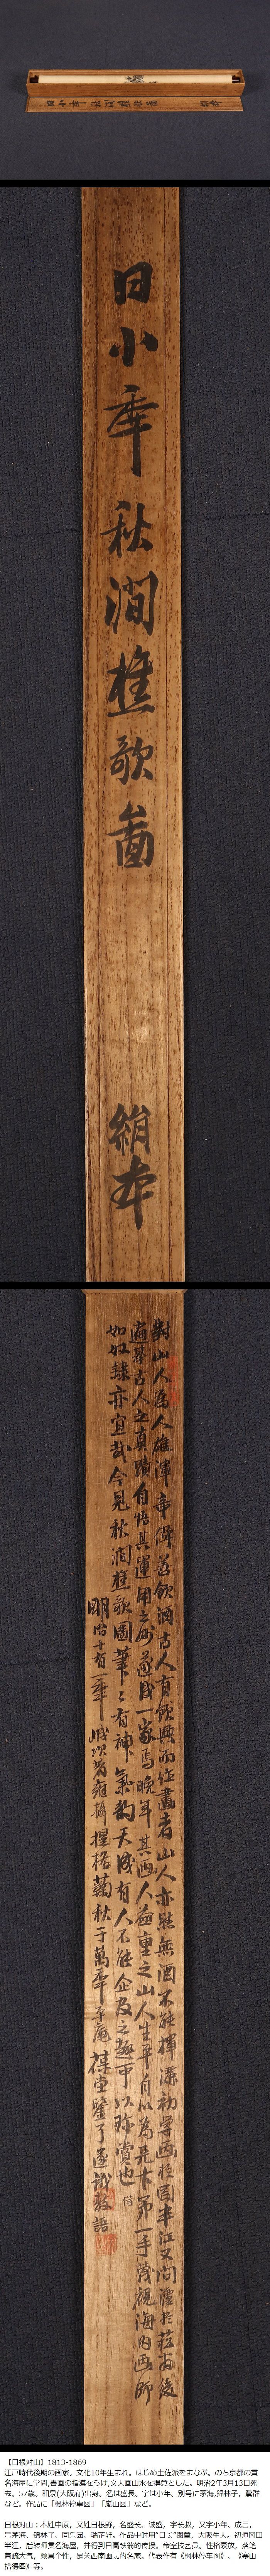 日小年秋澗樵歌啚
絹本
對山人為人雄渾奇偉善飲酒古人有飲興而作畫者山人亦然無酒不能揮灑初学画於岡半江又問灋於菘翁後
遍摹古人之真蹟自悟其運用之妙遂成一家焉晩年其画人益重之山人生平自以為長卞第一手蔑視海内画師
如奴隸亦宜哉今見秋澗樵歌圖筆々有神氣韵天成有人不能企及之趣可以珍賞也
明治十有一年
葆堂鑒了遂識数語
【日根対山】1813-1869
江戸時代後期の画家。文化10年生まれ。はじめ土佐派をまなぶ。のち京都の貫
名海屋に学問,書画の指導をうけ,文人画山水を得意とした。明治2年3月13日死
去。57歳。和泉(大阪府)出身。名は盛長。字は小年。別号に茅海,錦林子，蠶群
など。作品に「楓林停車図」「嵐山図」など。
日根对山：本姓中原，又姓日根野，名盛长、诚盛，字长叔，又字小年、成言，
号茅海、锦林子、同乐园、瑞芷轩。作品中好用“日长”画章。大阪生人。初师冈田
半江，后转师贯名海屋，并得到日高铁翁的传授。帝室技艺员。性格豪放，落笔
萧疏大气，颇具个性，是关西南画坛的名家。代表作有《枫林停车图》、《寒山
拾得图》等。